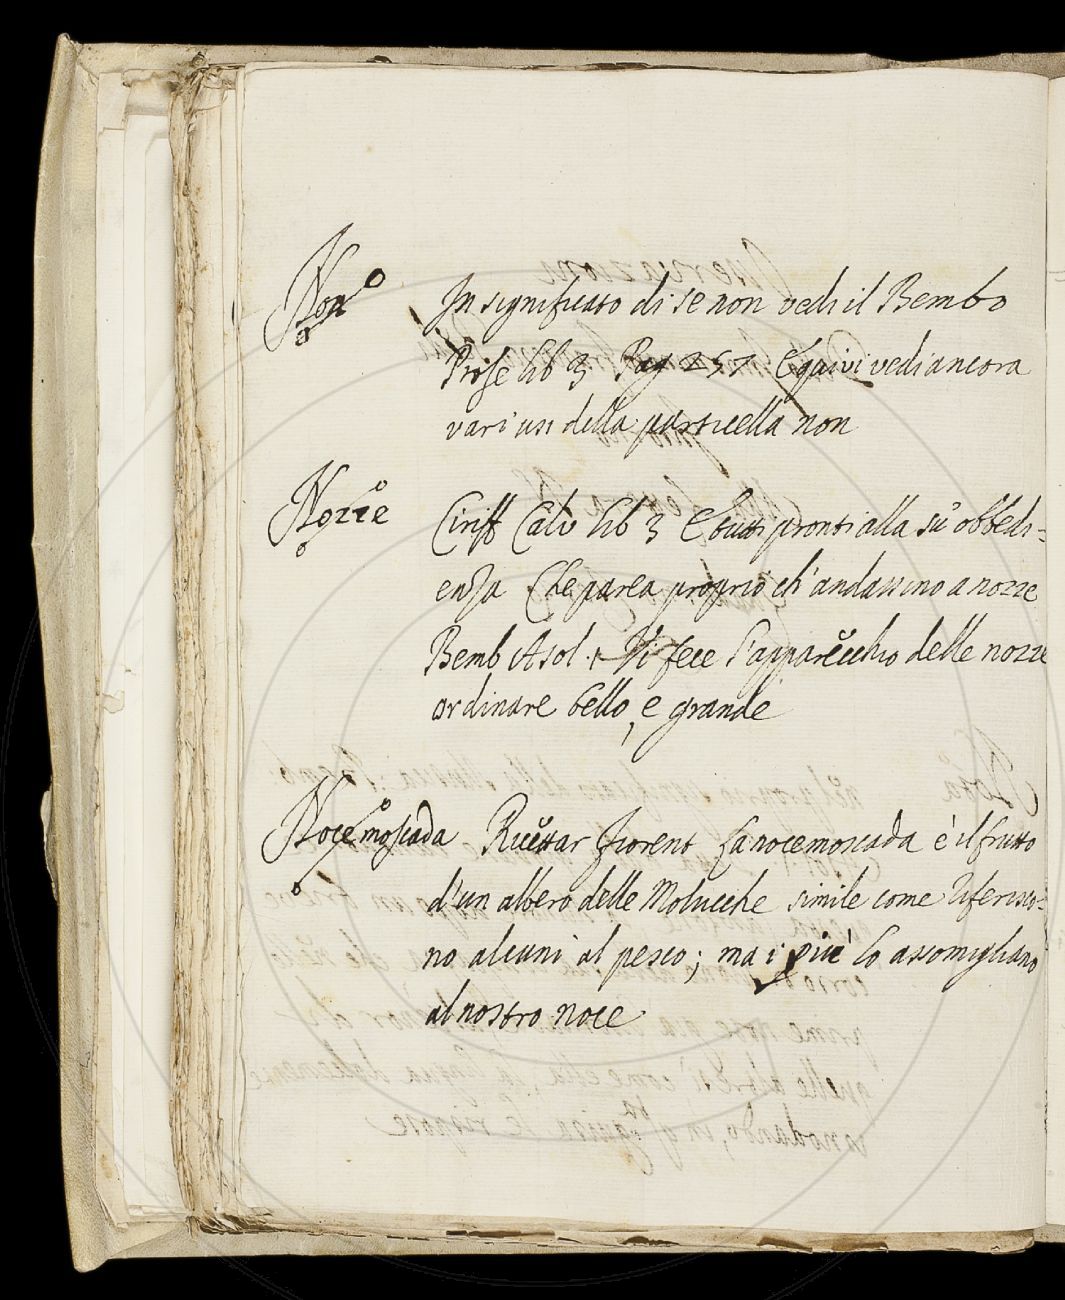 Non In significato di se non vedi il Bembo
Prose lib 3 Pag 257 E quivi vedi ancora
vari usi della particella non
Nozze Ciriff Calv lib 3 E tutti pronti alla su' obbedi=
enza Che parea proprio ch' andassino a nozze
Bemb Asol. 1 Vi fece l'apparecchio delle nozze
ordinare bello, e grande
Noce moscada Ricettar Fiorent La noce moscada è il frutto
d'un albero delle Molucche simile come riferisco=
no alcuni al pesco; ma i più lo assomigliano
al nostro noce